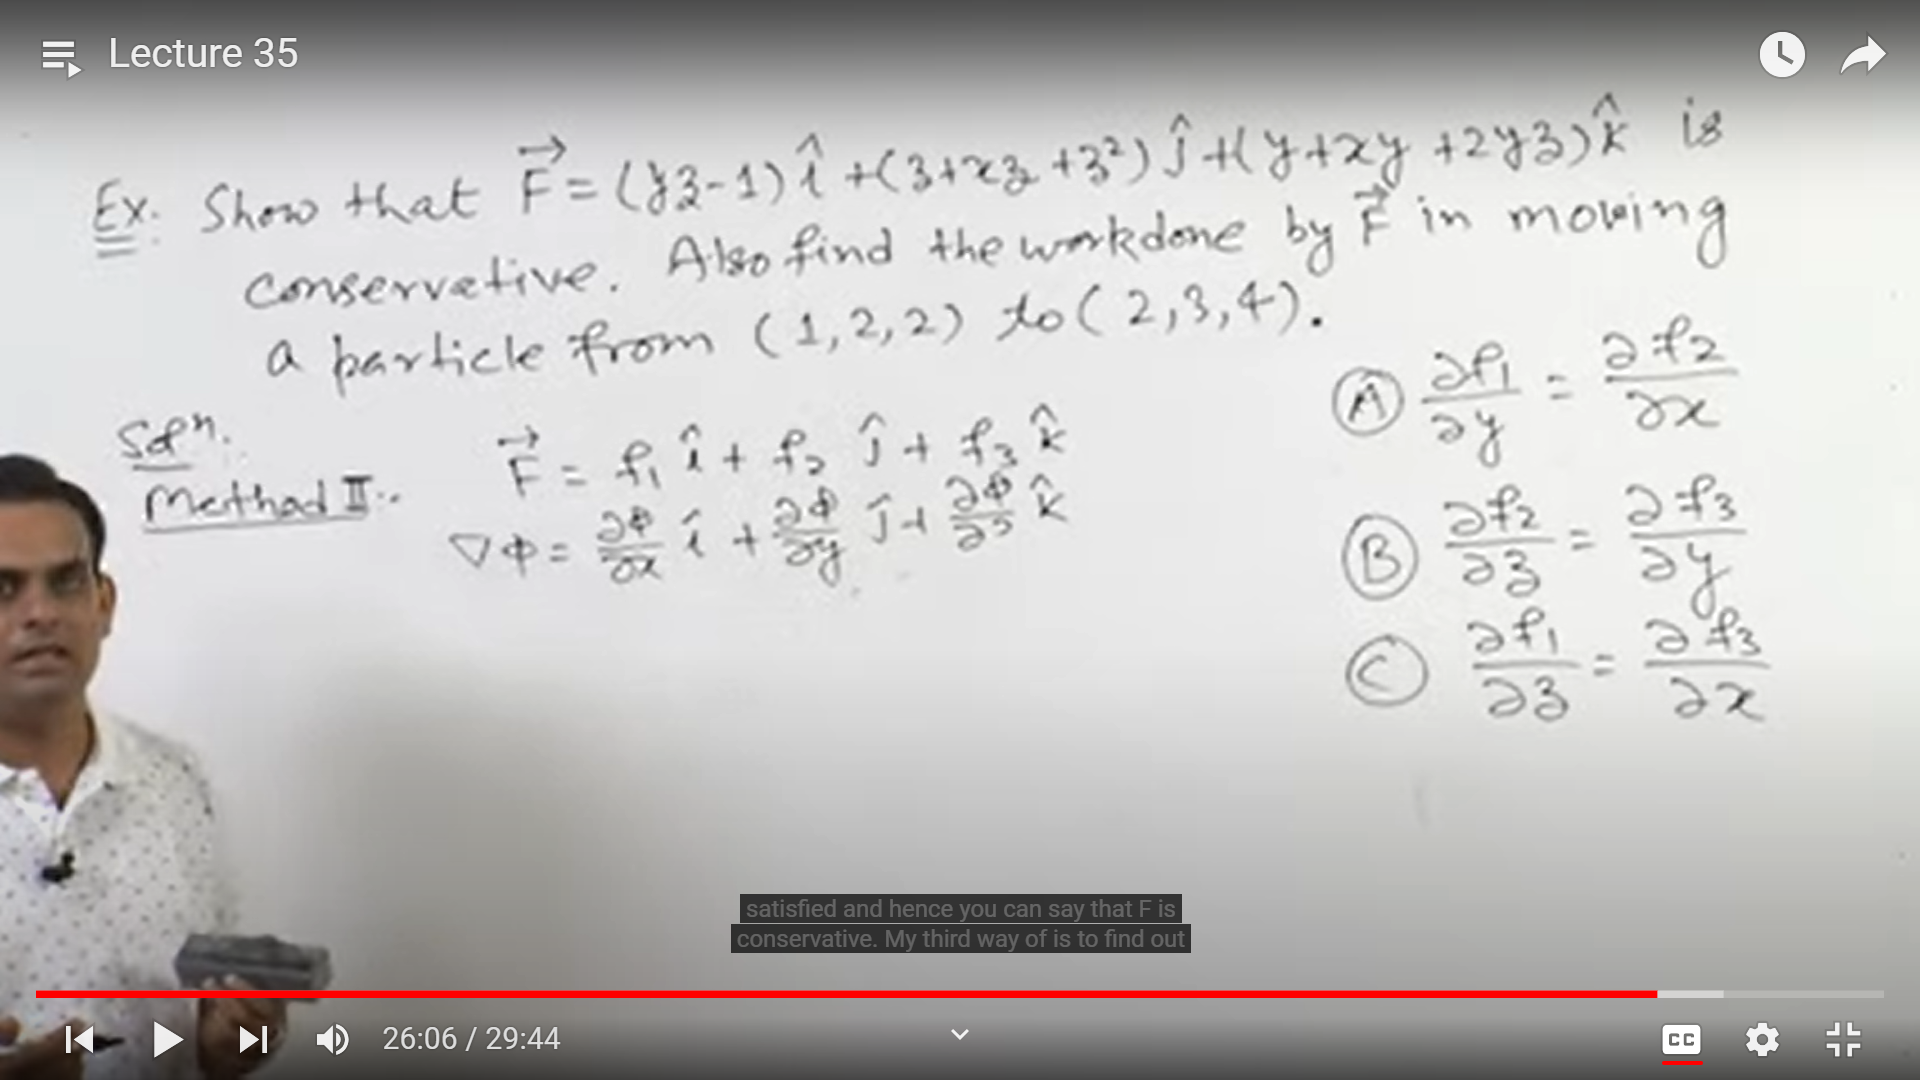 Lecture 35
Ex. Show that F⃗ = (yz-1) î + (z+xz+z²) ĵ + (y+xy+2yz) k̂ is
conservative. Also find the workdone by F⃗ in moving
a particle from (1,2,2) to (2,3,4).
Solⁿ.
Method II:-
F⃗ = f₁ î + f₂ ĵ + f₃ k̂
∇φ = ∂φ/∂x î + ∂φ/∂y ĵ + ∂φ/∂z k̂
(A) ∂f₁/∂y = ∂f₂/∂x
(B) ∂f₂/∂z = ∂f₃/∂y
(C) ∂f₁/∂z = ∂f₃/∂x
satisfied and hence you can say that F is
conservative. My third way of is to find out
26:06 / 29:44
CC